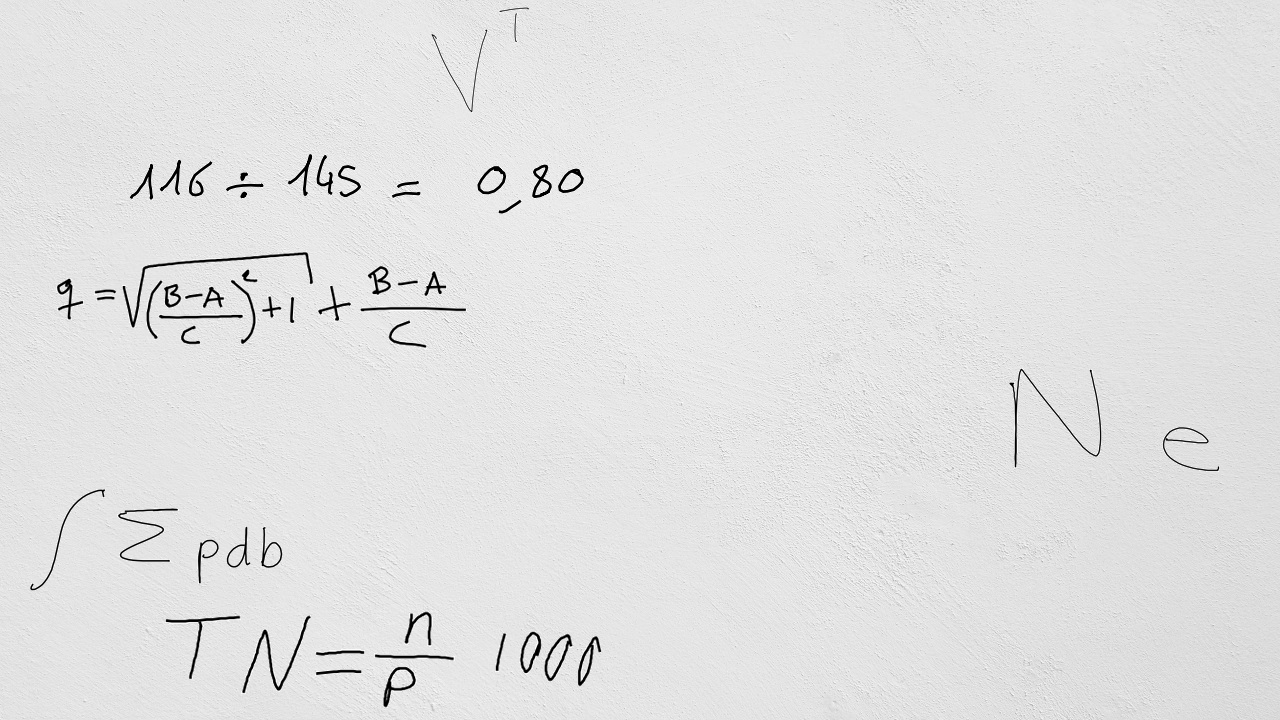 V^T
116 ÷ 145 = 0,80
q = √((B-A)/C)²+1 + (B-A)/C
N e
∫ Σ pdb
TN = n/P 1000